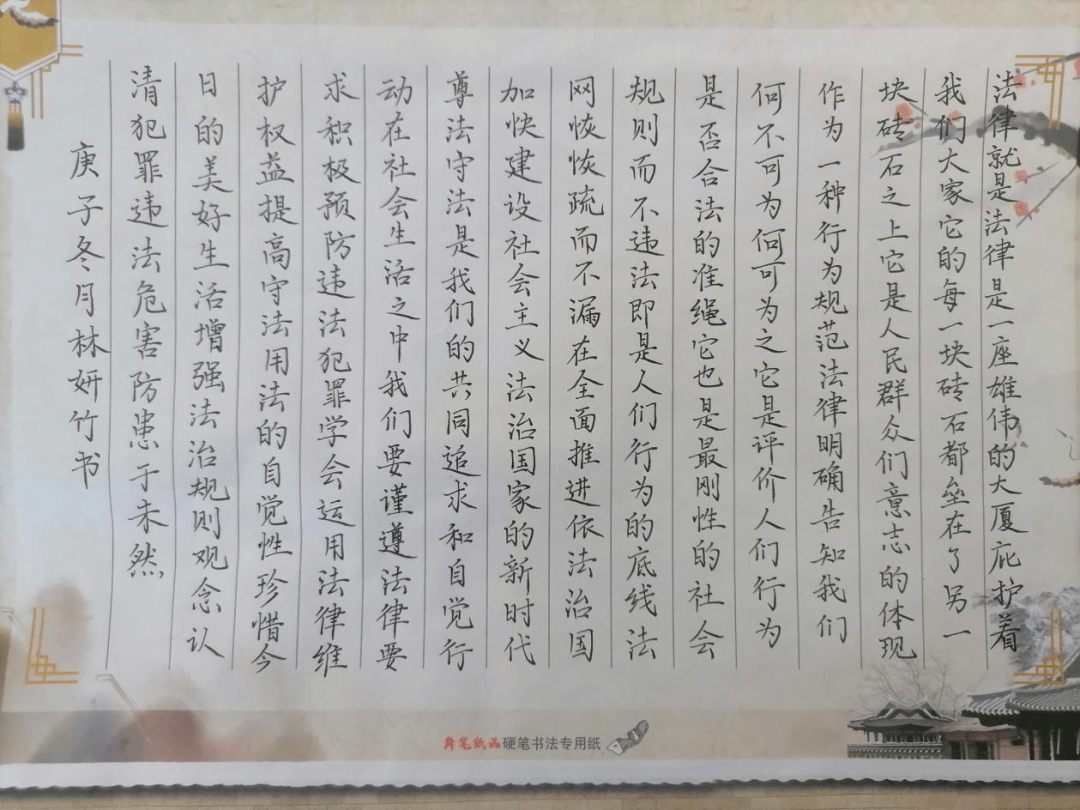 法律就是法律是一座雄伟的大厦庇护着
我们大家它的每一块砖石都垒在了另一
块砖石之上它是人民群众们意志的体现
作为一种行为规范法律明确告知我们
何不可为何可为之它是评价人们行为
是否合法的准绳它也是最刚性的社会
规则而不违法即是人们行为的底线法
网恢恢疏而不漏在全面推进依法治国
加快建设社会主义法治国家的新时代
尊法守法是我们的共同追求和自觉行
动在社会生活之中我们要谨遵法律要
求积极预防违法犯罪学会运用法律维
护权益提高守法用法的自觉性珍惜今
日的美好生活增强法治规则观念认
清犯罪违法危害防患于未然
庚子冬月林妍竹书
舞笔纸品硬笔书法专用纸